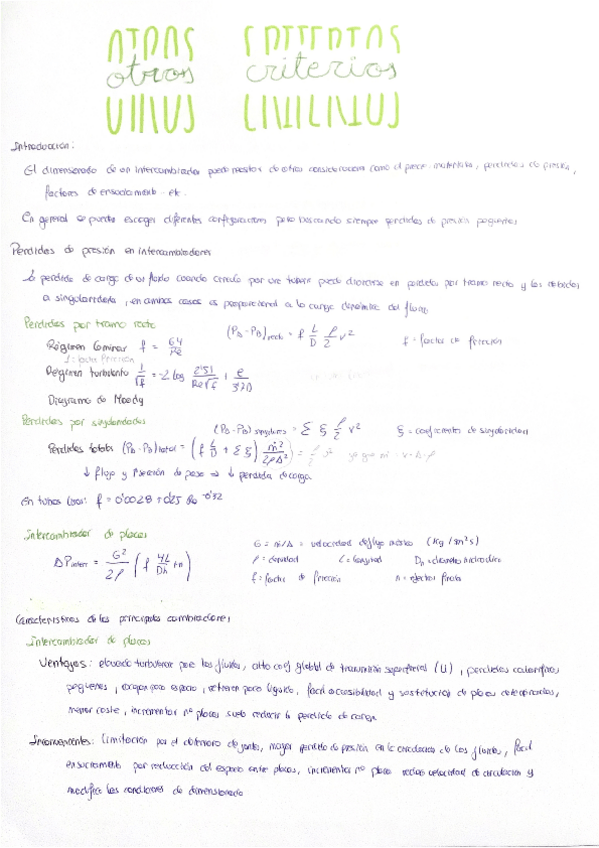 otros criterios
Introducción:
El dimensionado de un intercambiador puede resultar de otras consideraciones como el precio materiales, perdidas de presión,
factores de ensuciamiento etc.
En general se puede escoger diferentes configuraciones pero buscando siempre perdidas de presión pequeñas
Perdidas de presión en intercambiadores
La perdida de carga de un fluido cuando circula por una tuberia puede dividirse en perdidas por tramo recto y las debidas
a singularidades, en ambos casos es proporcional a la carga dinámica del flujo
Perdidas por tramo recto
(PA - PB)recto = f L/D ρ/2 v²
f = factor de fricción
Régimen laminar f = 64/Re
f = factor fricción
Regimen turbulento 1/√f = -2 log 2'51/Re√f + e/3'7D
Diagrama de Moody
Perdidas por singularidades
(PA - PB) singulares = Σ ξ ρ/2 v²
ξ = coeficientes de singularidad
Perdidas totales (PA - PB)total = (f L/D + Σ ξ) ṁ²/2ρA² = ρ/2 v² ya que ṁ = v·A·ρ
↓ flujo y ↑ sección de paso ⇒ ↓ perdida de carga
En tubos lisos: f = 0'0028 + 0'25 Re^-0'32
Intercambiador de placas
ΔP = G²/2ρ (f 4L/Dh + n)
G = ṁ/A = velocidad de flujo másico (kg/sm²)
ρ = densidad L = longitud Dh = diametro hidraulico
f = factor de fricción n =
Caracteristicas de los principales
Intercambiador de placas
Ventajas: elevada turbulencia para los fluidos, alto coef global de transmisión superficial (U), perdidas caloríficas
pequeñas, ocupan poco espacio, retienen poco liquido, facil accesibilidad y sustitución de placas deterioradas,
menor coste, incrementar nº placas suele reducir la perdida de carga
Inconvenientes: Limitación por el deterioro de juntas, mayor perdida de presión en la circulación de los fluidos, facil
ensuciamiento por reducción del espacio entre placas, incrementar nº placas reduce velocidad de circulación y
modifica las condiciones de dimensionado